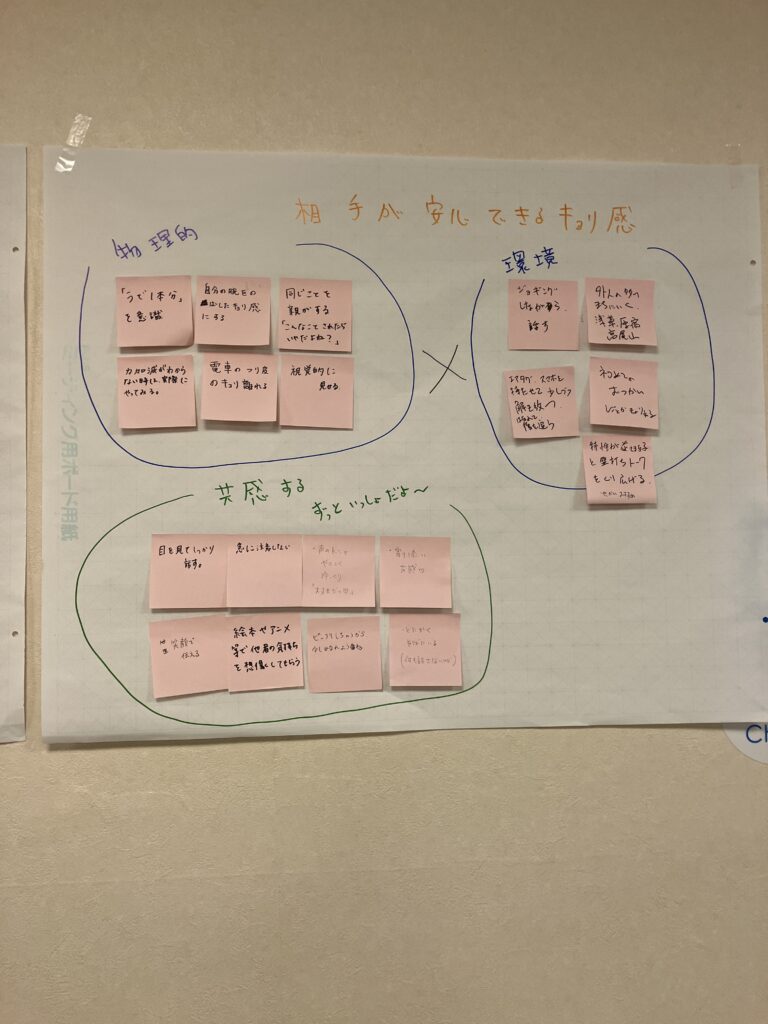 相手が安心できるキョリ感
物理的
「うで1本分」
を意識
自分の腕を
出したキョリ感
にする
同じことを
親がする
「こんなことされたら
いやだよね?」
力加減がわから
ない時は、実際に
やってみる。
電車のつり皮
のキョリ離れる
視覚的に
見せる
×
環境
ジョギング
しながら
話す
外人の多い
まちにいく。
浅草、原宿
高尾山
スマホを
持たせて少しづつ
初めての
おつかい
と壁打ちトーク
をくり広げる。
共感する
ずっといっしょだよ〜
目を見てしっかり
話す。
急に注意しない
やさしく
寄り添い
共感
笑顔で
伝える
絵本やアニメ
等で他者の気持ち
を想像してもらう
・とにかく
ミーティング用ボード用紙
Ch